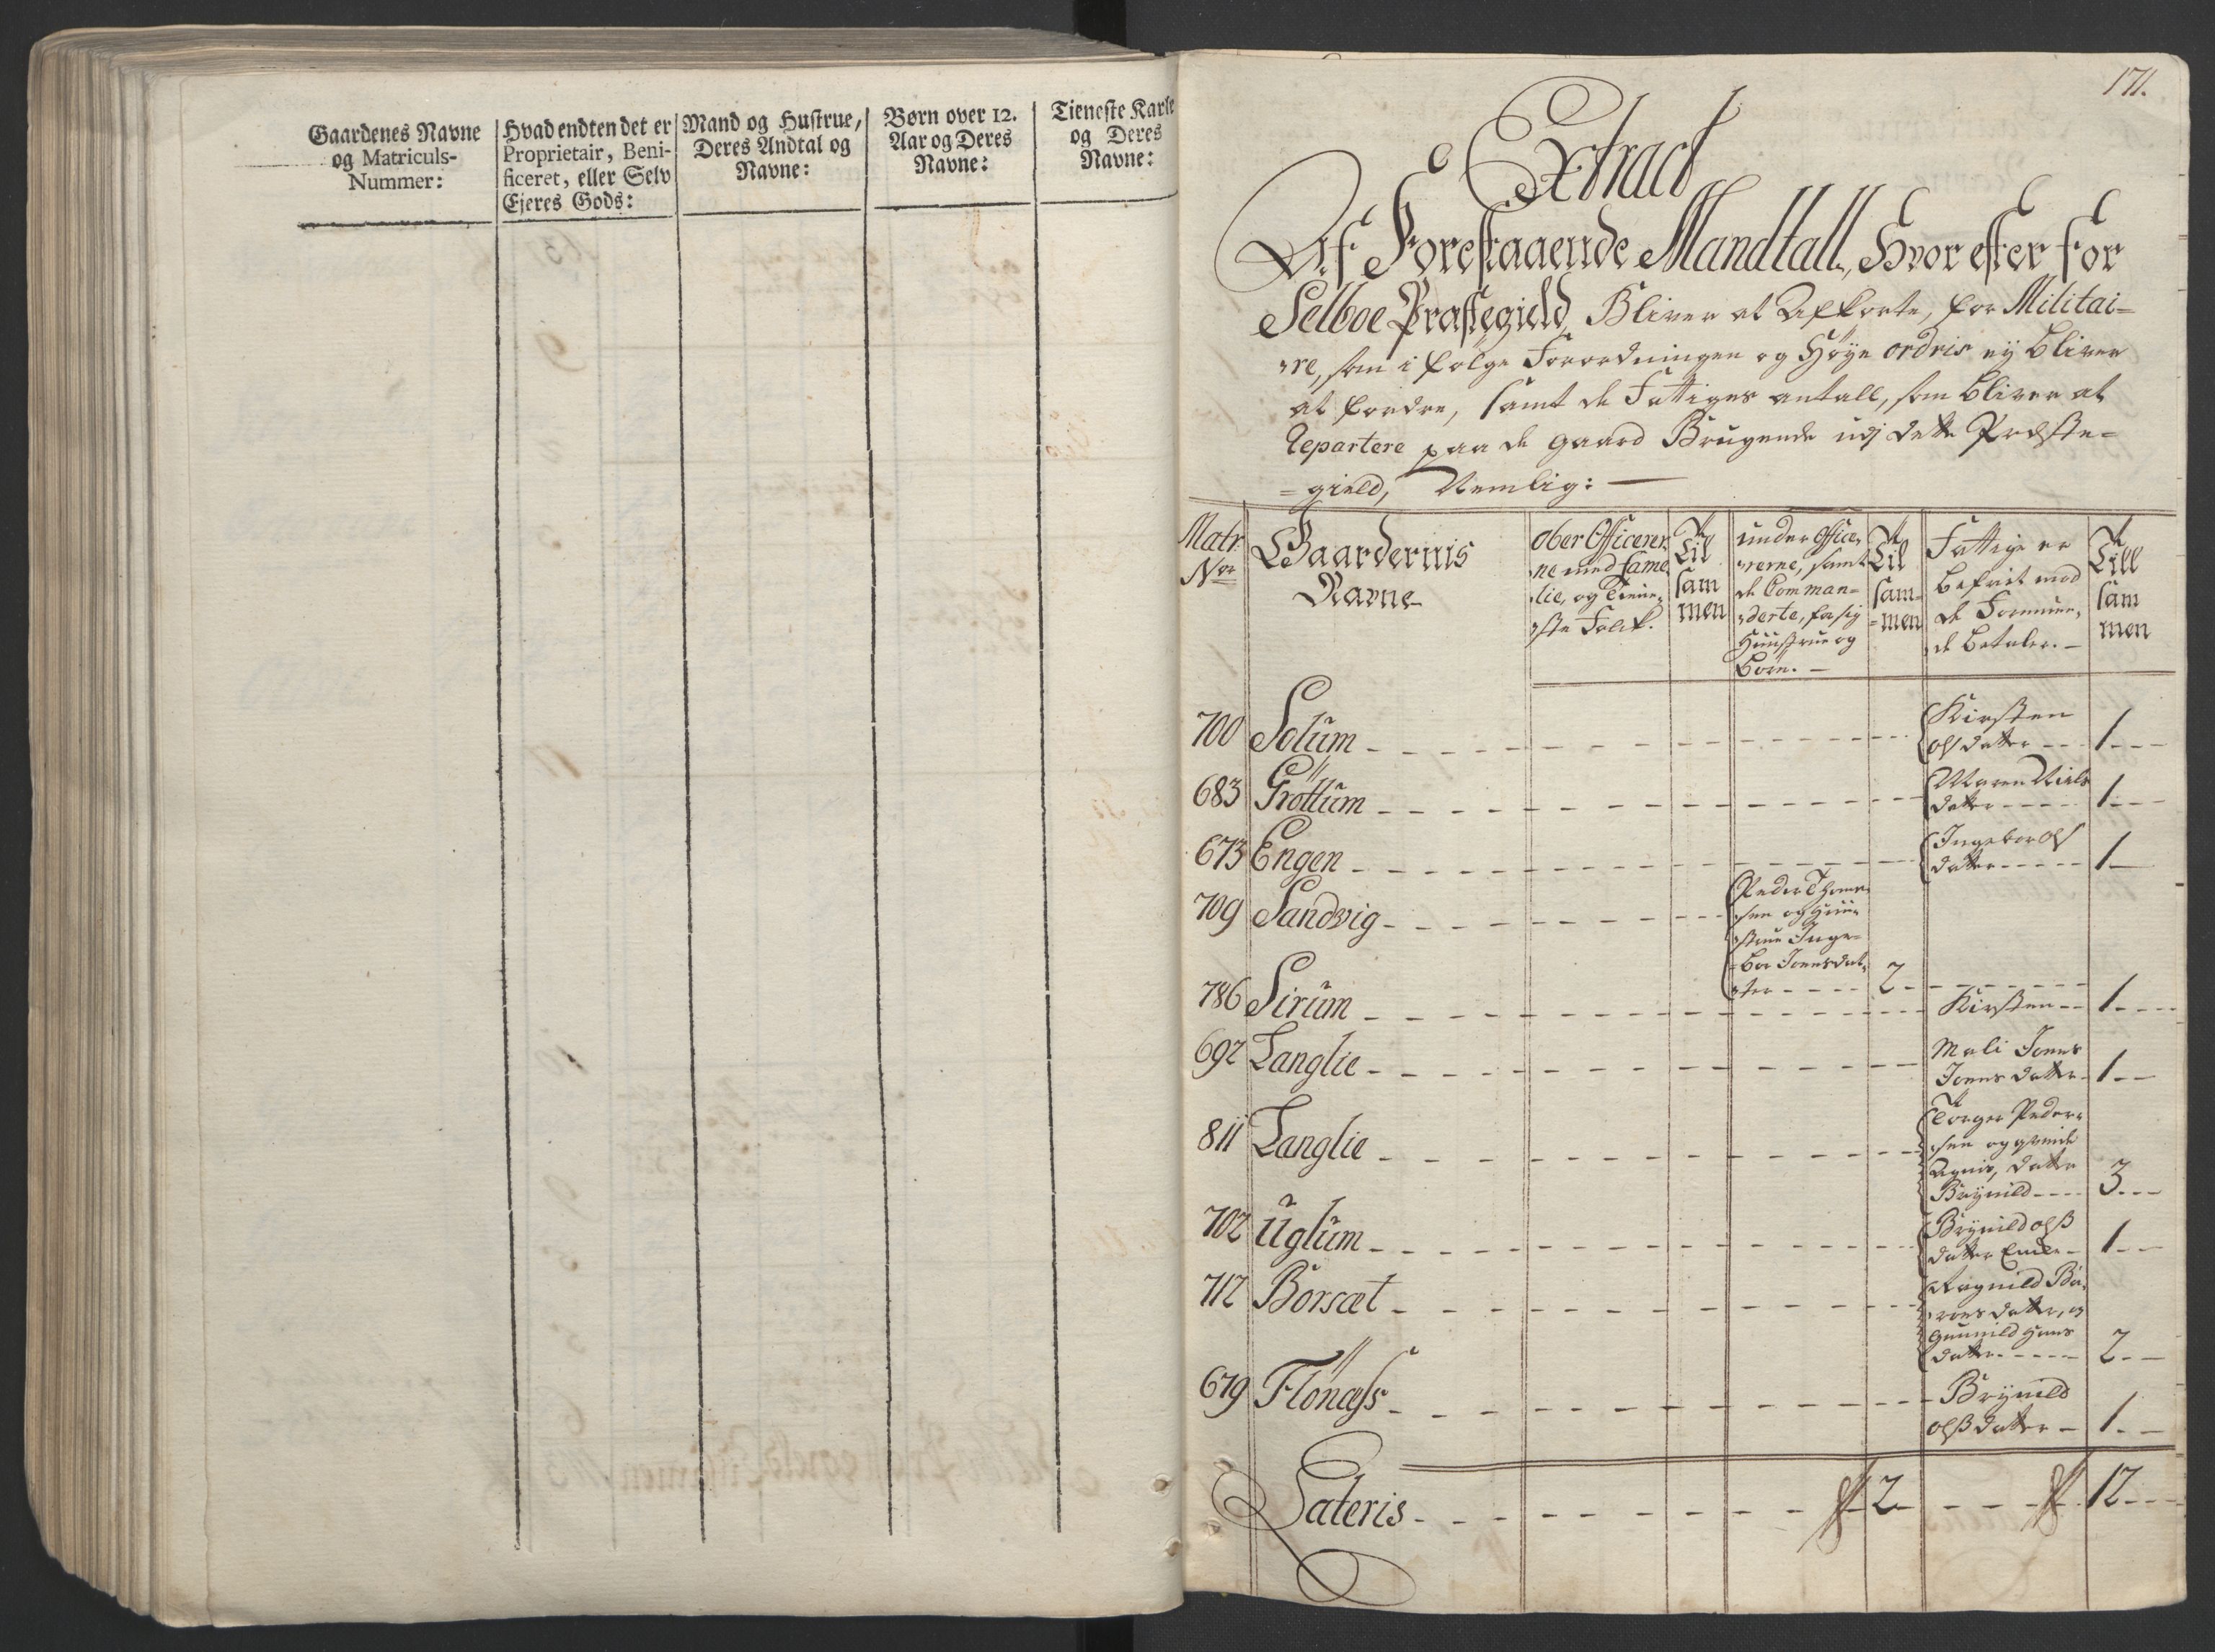 Gaardenes Navne
og Matriculs-
Nummer:
Hvad endten det er
Proprietair, Beni-
ficeret, eller Selv
Ejeres Gods:
Mand og Hustrue,
Deres Andtal og
Navne:
Børn over 12.
Aar og Deres
Navne:
Tieneste Karle
og Deres
Navne:
171.
Extract
Af Forestaaende Mandtall, Hvor efter for
Selboe Præstegield, Bliver at Afkorte, for Militai=
re, som i følge Forordningen og Høye ordris ey bliver
at fordre, samt de Fattiges antall, som bliver at
Repartere paa de gaard Brugende udj dette Præste=
=gield, Nemlig:
Matr
Nor
Gaardernis
Navne
Ober Officerer
ne med fame
lie, og Tiene
ste Folck.
Til
sam
men
under Office
rerne, samt
de Comman=
derte, for sig
Huustrue og
Börn.
Til
sam=
=men
Fattige er
befriet mod
de Formuen
de betaler.
Till
sam
men
700 Solum - - - Kirsten
olsdatter - - 1 - -
683 Gröttum - - - Maren Niels
datter - - - 1 - -
673 Engen - - - Ingebor Ols
datter - - - 1 -
709 Sandvig - - - Peder Thom
sen og Huu
strue Inge=
=bor Joensdat
ter - - - 2 - - -
786 Sirum - - - Kirsten - - 1 - - -
692 Langlie - - - Mali Joens
Joens datter - 1 - -
811 Langlie - - - Torger Peder
sen og qvinde
Agnis, datter
Brynild - - - 3 - - -
702 Uglum - - - Brynild olss
datter Encke - 1 - -
712 Borsæt - - - Ragnild Baa
roes datter, og
Gunnild Hans
datter - - - 2 - -
679 Flönæss - - - Brynild
olss datter - 1 - -
Lateris - - - 2 - - - 12 - - -